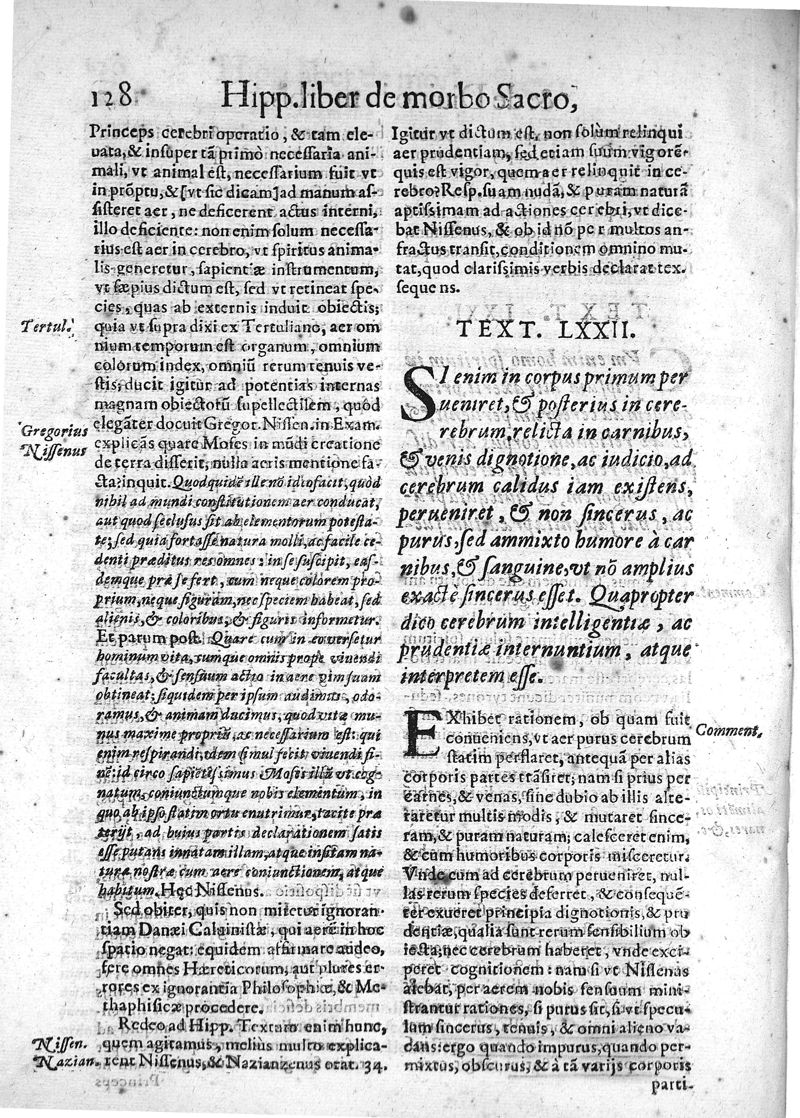 128 Hipp. liber de morbo Sacro,
Princeps cerebri operatio, & tam ele-
vata, & insuper tã primò necessaria ani-
mali, vt animal est, necessarium fuit vt
in prõptu, & [vt sic dicam] ad manum as-
sisteret aer, ne deficerent actus interni,
illo deficiente: non enim solum necessa-
rius est aer in cerebro, vt spiritus anima-
lis generetur, sapientiæ instrumentum,
vt sæpius dictum est, sed vt retineat spe-
cies, quas ab externis induit obiectis;
Tertul.
quia vt supra dixi ex Tertuliano, aer om
nium temporum est organum, omnium
colorum index, omniũ rerum tenuis ve-
stis; ducit igitur ad potentias internas
magnam obiectorũ supellectilem, quòd
Gregorius
Nissenus
elegãter docuit Gregor. Nissen. in Exam.
explicãs quare Moses in mũdi creatione
de terra disserit, nulla aeris mentione fa-
cta: inquit. Quod quidẽ ille nõ id o facit, quod
nihil ad mundi constitutionem aer conducat,
aut quod seclusus sit ab elementorum potesta-
te; sed quia fortasse natura molli, ac facile ce-
denti præditus res omnes: in se suscipit, eas-
demque præ se fert, cum neque colorem pro-
prium, neque figuram, nec speciem habeat, sed
alienis, & coloribus, & figuris informatur.
Et parum post. Quare cum in eo versetur
hominum vita, cumque omnis prope vivendi
facultas, & sensuum actio in aere vim suam
obtineat; siquidem per ipsum audimus, odo-
ramus, & animam ducimus, quod vitæ mu-
nus maxime propriũ, ac necessarium est: qui
enim respirandi, idem simul fecit vivendi fi-
nẽ: id circo sapiẽtissimus Moses illã vt cog-
natum, coniunctumque nobis elementum, in
quo ab ipso statim ortu enutrimur, tacite præ
terijt, ad huius partis declarationem satis
esse putans innatam illam, atque insitam na-
turæ nostræ cum aere coniunctionem, atque
habitum. Hęc Nissenus.
Sed obiter, quis non miretur ignoran-
tiam Danæi Caluinistæ, qui aerẽ in hoc
spatio negat: equidem affirmare audeo,
fere omnes Hæreticorum, aut plures er-
rores ex ignorantia Philosophiæ, & Me-
thaphisicæ procedere.
Nissen.
Nazian.
Redeo ad Hipp. Textum enim hunc,
quem agitamus, melius multo explica-
rent Nissenus, & Nazianzenus orat. 34.
Igitur vt dictum est, non solùm relinqui
aer prudentiam, sed etiam suum vigorẽ
quis est vigor, quem aer relinquit in ce-
rebro? Resp. suam nudã, & puram naturã
aptissimam ad actiones cerebri, vt dice-
bat Nissenus, & ob id nõ per multos an-
fractus transit, conditionem omnino mu-
tat, quod clarissimis verbis declarat tex.
sequens.
TEXT. LXXII.
SI enim in corpus primum per
ueniret, & posterius in cere-
rebrum, relicta in carnibus,
& venis dignotione, ac iudicio, ad
cerebrum calidus iam existens,
perueniret, & non sincerus, ac
purus, sed ammixto humore à car
nibus, & sanguine, vt nõ amplius
exacte sincerus esset. Quapropter
dico cerebrum intelligentiæ, ac
prudentiæ internuntium, atque
interpretem esse.
Comment.
EXhibet rationem, ob quam fuit
conueniens, vt aer purus cerebrum
statim perflaret, antequã per alias
corporis partes trãsiret; nam si prius per
carnes, & venas, sine dubio ab illis alte-
raretur multis modis, & mutaret since-
ram, & puram naturam; calesceret enim,
& cum humoribus corporis misceretur.
Vnde cum ad cerebrum perueniret, nul-
las rerum species deferret, & consequẽ-
ter exueret principia dignotionis, & pru
dentiæ, qualia sunt rerum sensibilium ob
iecta, nec cerebrum haberet, vnde exci-
peret cognitionem: nam si vt Nissenus
aiebat, per aerem nobis sensuum mini-
strantur rationes, si purus sit, si vt specu-
lum sincerus, tenuis, & omni alieno va-
cans: ergo quando impurus, quando per-
mixtus, obscurus, & à tã varijs corporis
parti-